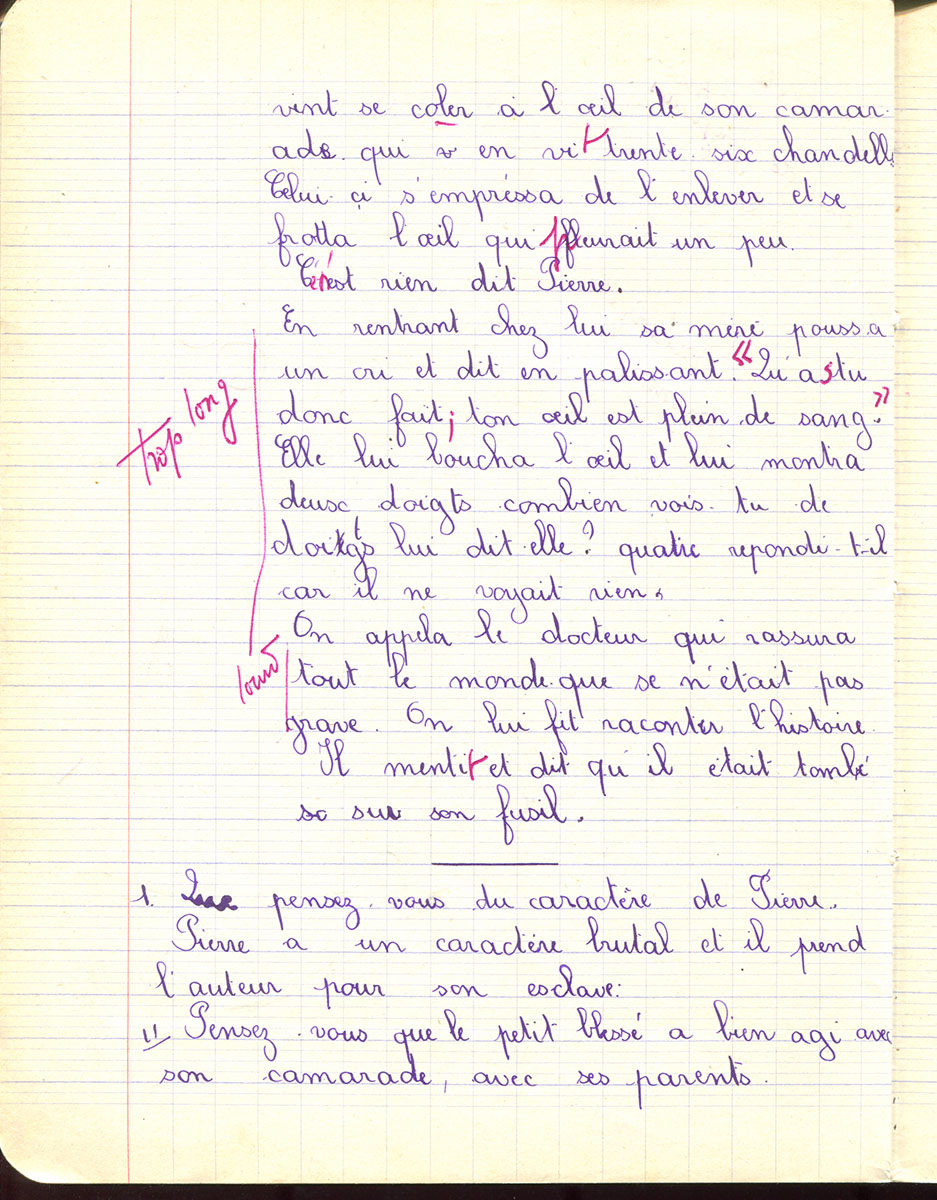 vint se coler à l'œil de son camar-
ade qui v en vit trente six chandell
Celui-çi s'empréssa de l'enlever et se
frotta l'œil qui pleurait un peu.
Ce n'est rien dit Pierre.
En rentrant chez lui sa mère poussa
un cri et dit en palissant. « Qu'as tu
donc fait; ton œil est plein de sang. »
trop long
Elle lui boucha l'œil et lui montra
deux doigts combien vois-tu de
doigts lui dit-elle? quatre repondi-t-il
car il ne voyait rien.
On appela le docteur qui rassura
lourd
tout le monde que se n'était pas
grave. On lui fit raconter l'histoire.
Il mentit et dit qu'il était tombé
so sur son fusil.
1. Que pensez-vous du caractère de Pierre.
Pierre a un caractère brutal et il prend
l'auteur pour son esclave.
II Pensez-vous que le petit blessé a bien agi avec
son camarade, avec ses parents.